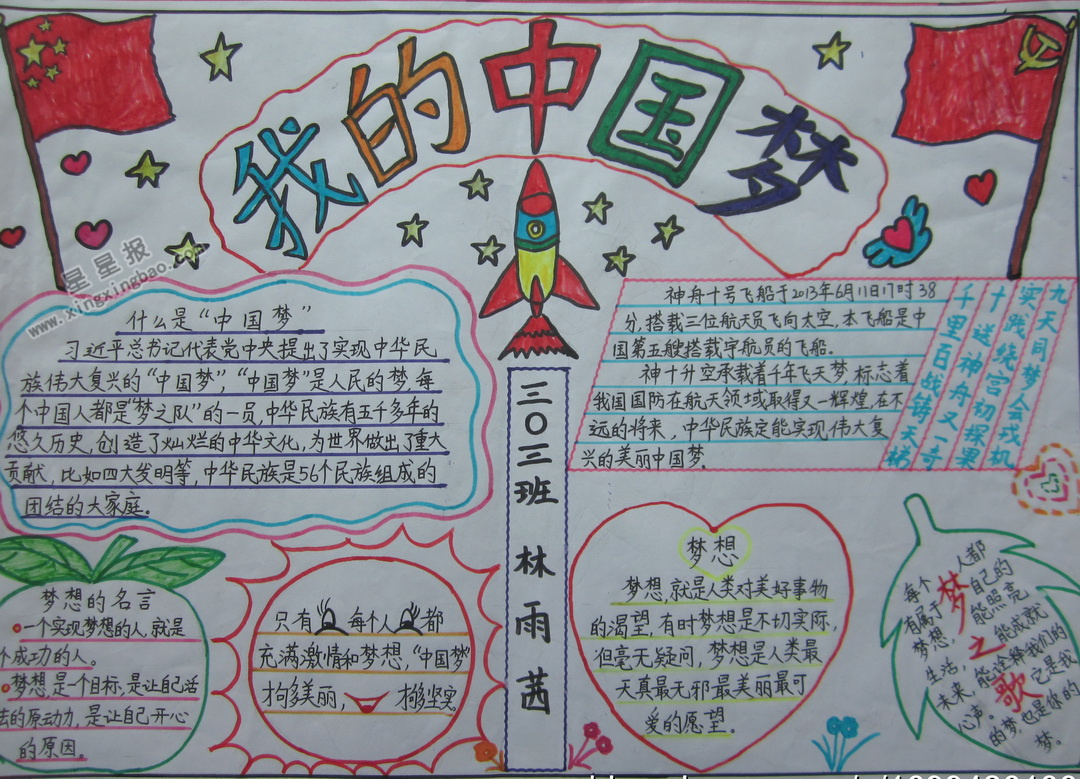 我的中国梦
星星报
www.xingxingbao.com
什么是“中国梦”
习近平总书记代表党中央提出了实现中华民
族伟大复兴的“中国梦”,“中国梦”是人民的梦,每
个中国人都是“梦之队”的一员,中华民族有五千多年的
悠久历史,创造了灿烂的中华文化,为世界做出了重大
贡献,比如四大发明等,中华民族是56个民族组成的
团结的大家庭。
神舟十号飞船于2013年6月11日17时38
分,搭载三位航天员飞向太空,本飞船是中
国第五艘搭载宇航员的飞船。
神十升空承载着千年飞天梦,标志着
我国国防在航天领域取得又一辉煌,在不
远的将来,中华民族定能实现伟大复
兴的美丽中国梦。
九天同梦会戎机
实践绕宫初探果
十送神舟又一奇
千里百战铸天梯
三〇三班 林雨茜
梦想的名言
一个实现梦想的人,就是
个成功的人。
梦想,是一个目标,是让自己活
的原动力,是让自己开心
的原因。
只有每个人都
充满激情和梦想,“中国梦”
才够美丽,才够坚实。
梦想
梦想,就是人类对美好事物
的渴望,有时梦想是不切实际,
但毫无疑问,梦想是人类最
天真最无邪最美丽最可
爱的愿望。
梦之歌
每个人都
有属于自己的
梦想,能照亮
生活,能成就
未来,能诠释我们的
心声。它是我
的梦,也是你的
梦。